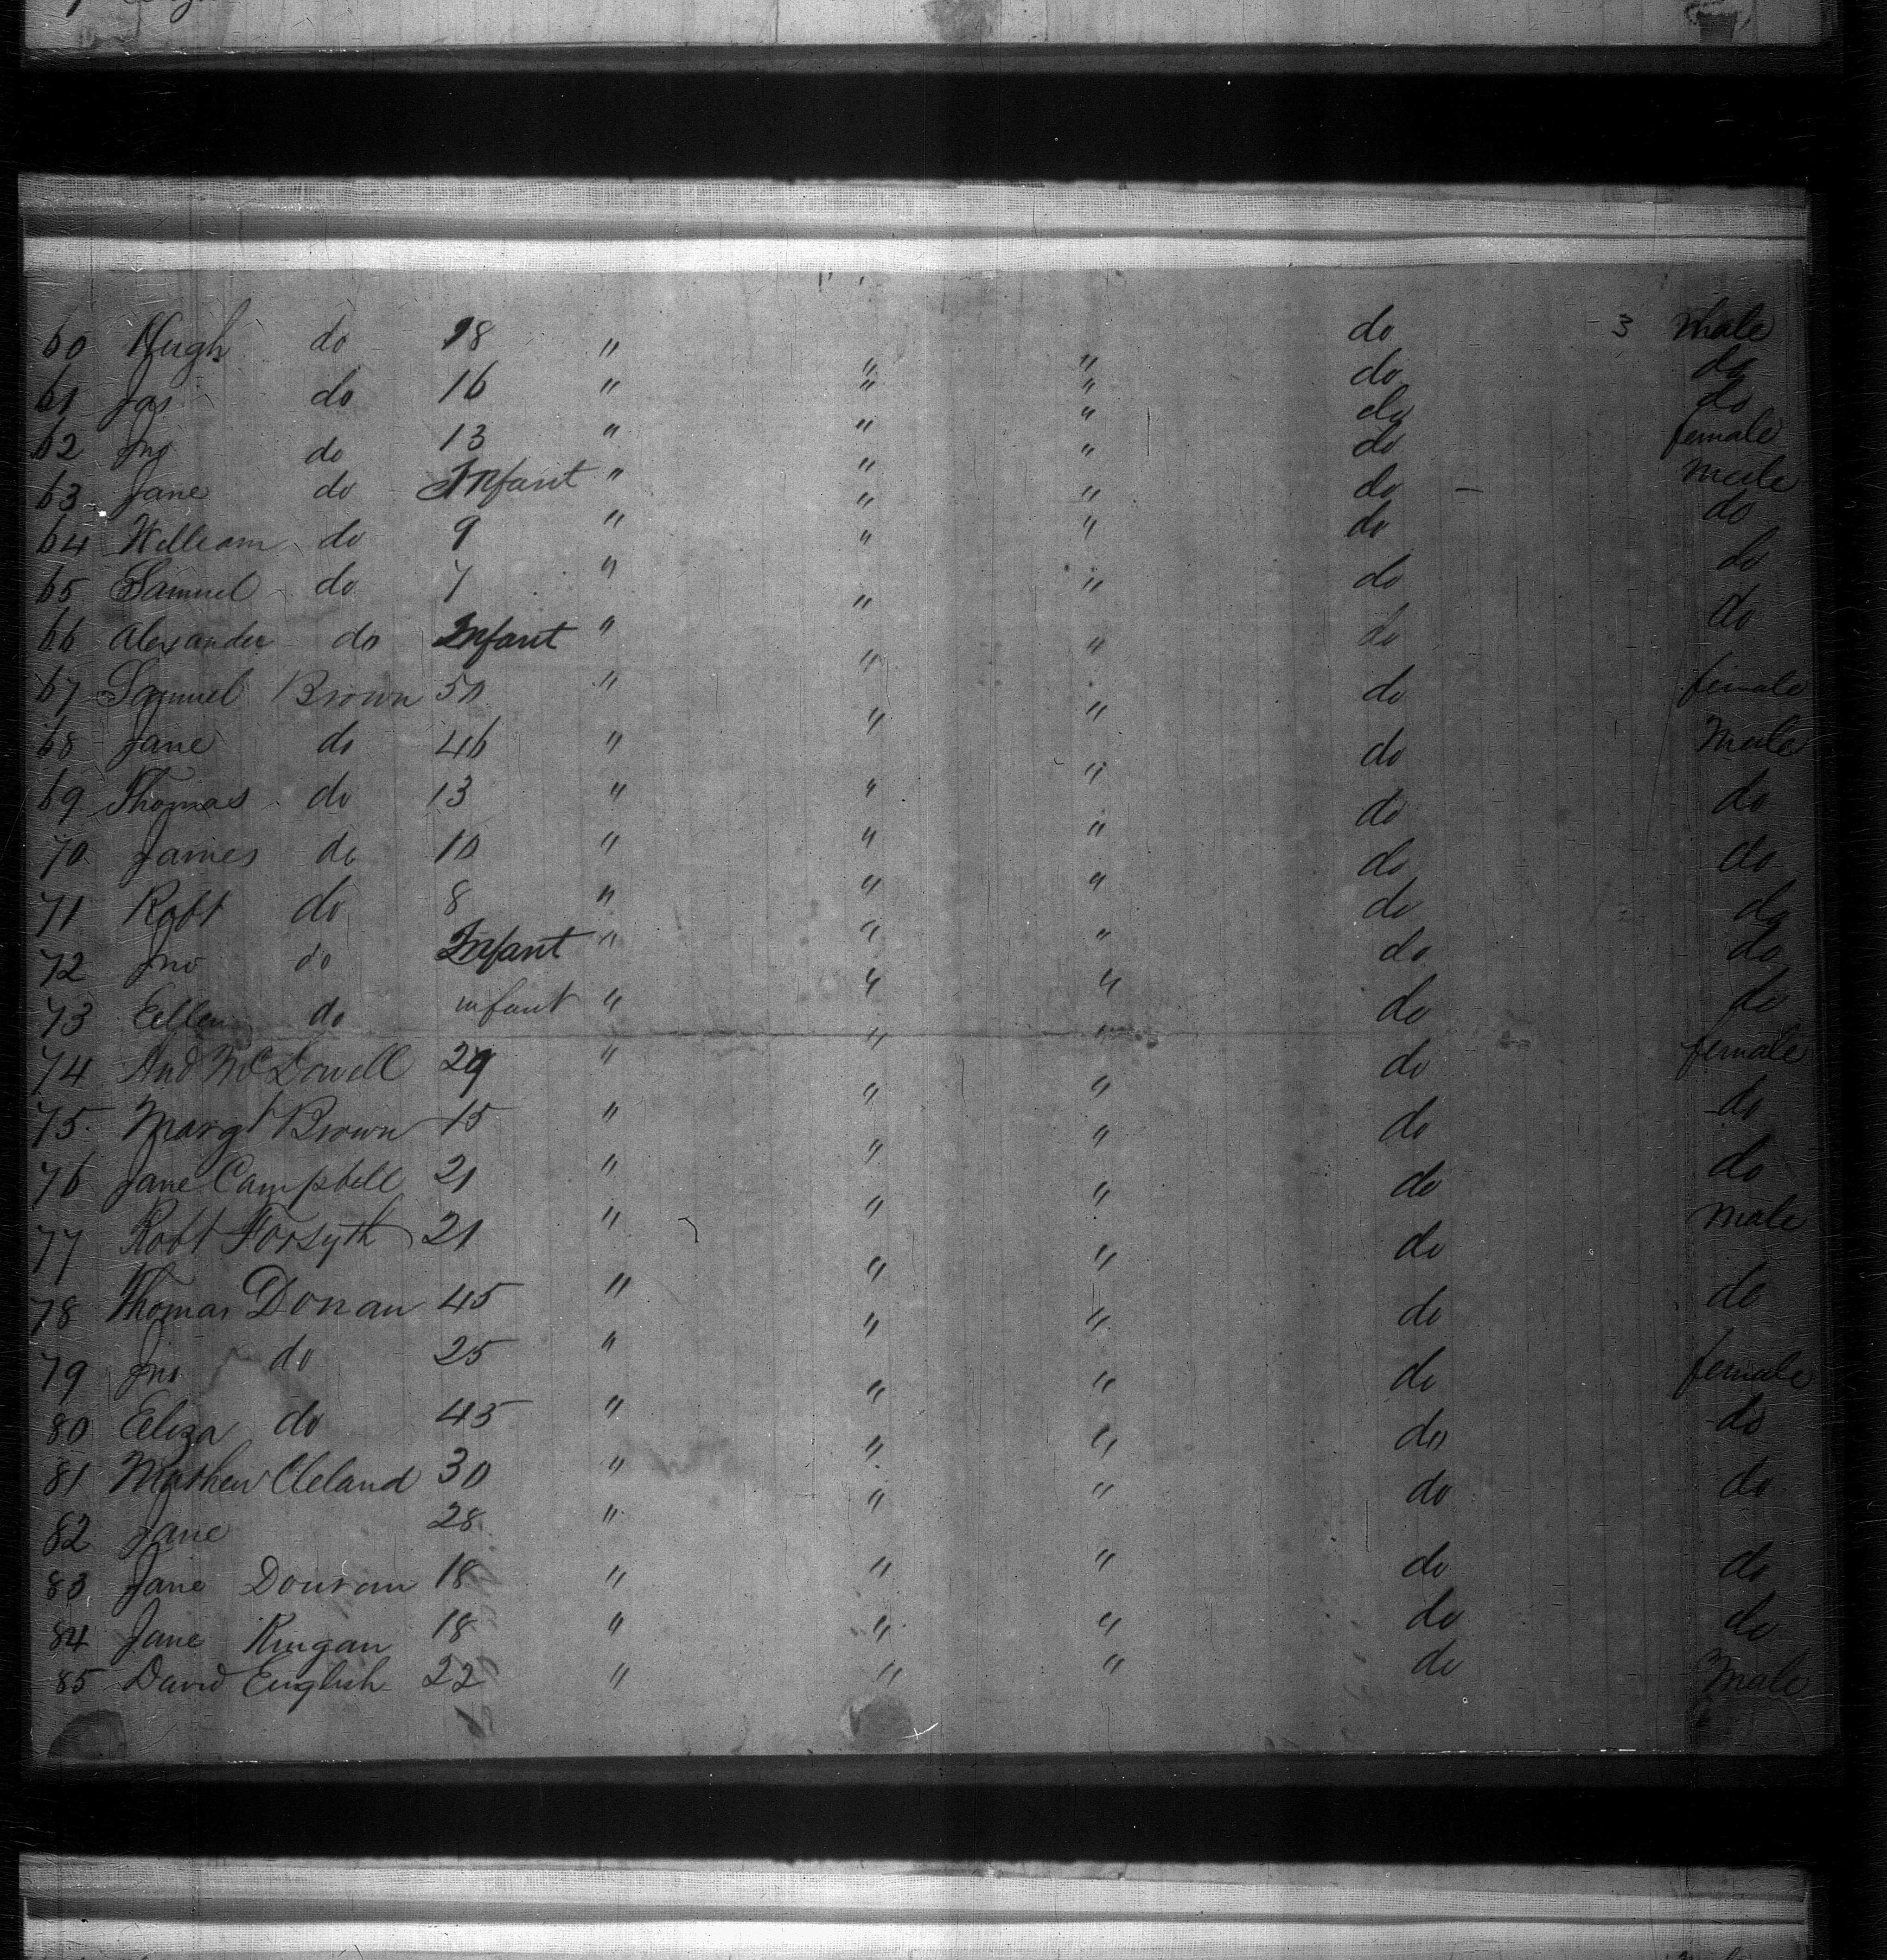 60 Hugh do 18 " " " do 3 male
61 Jas do 16 " " " do do
62 Jno do 13 " " " do do
63 Jane do Infant " " " do female
64 William do 9 " " " do male
65 Samuel do 7 " " " do do
66 Alexander do Infant " " " do do
67 Samuel Brown 50 " " " do do
68 Jane do 46 " " " do female
69 Thomas do 13 " " " do Male
70 James do 10 " " " do do
71 Robt do 8 " " " do do
72 Jno do Infant " " " do do
73 Eellen do infant " " " do do
74 And McDowell 29 " " " do do
75 Margt Brown 15 " " " do female
76 Jane Campbell 21 " " " do do
77 Robt Forsyth 21 " " " do do
78 Thomas Donan 45 " " " do male
79 Jno do 25 " " " do do
80 Eeliza do 45 " " " do female
81 Mathew Cleland 30 " " " do do
82 Jane 28 " " " do do
83 Jane Donran 18 " " " do do
84 Jane Ringan 18 " " " do do
85 David English 22 " " " do Male